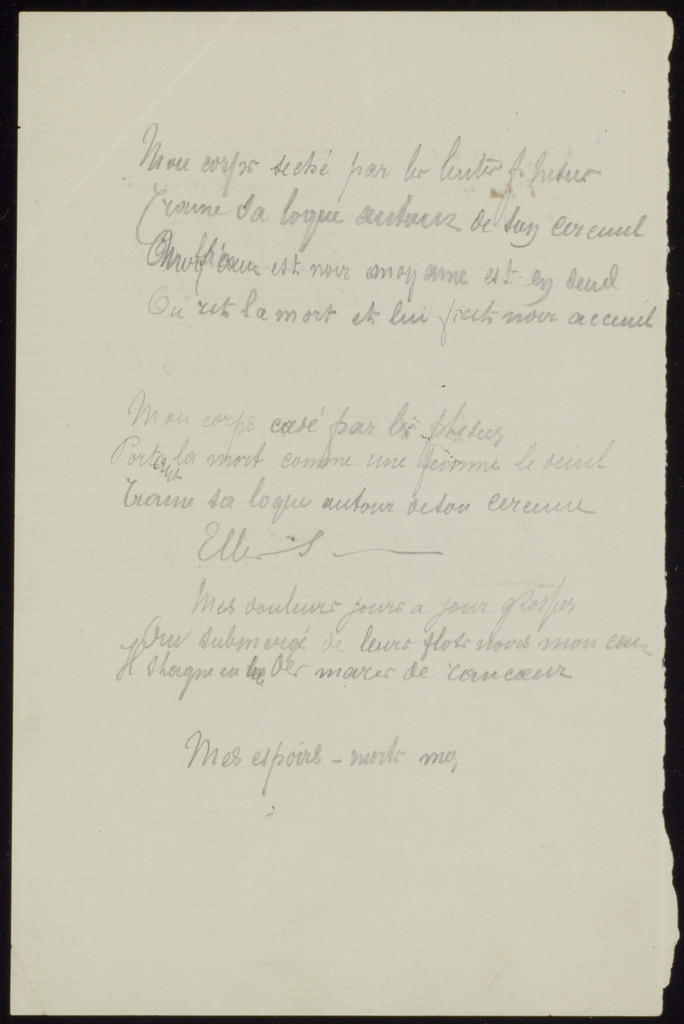 Mon corps seché par les lentes phtisies
Traine sa loque autour de son cercueil
est noir mon ame est en deuil
Ou rit la mort et lui fait noir acceuil
Mon corps casé par les phtisies
Portant la mort comme une femme le deuil
Traine sa loque autour de son cercueil
Elle
Mes douleurs jours a jour
Ont submergé de leurs flots noirs mon coeur
Il stagne en des mares de rancoeur
Mes espoirs - morts mes